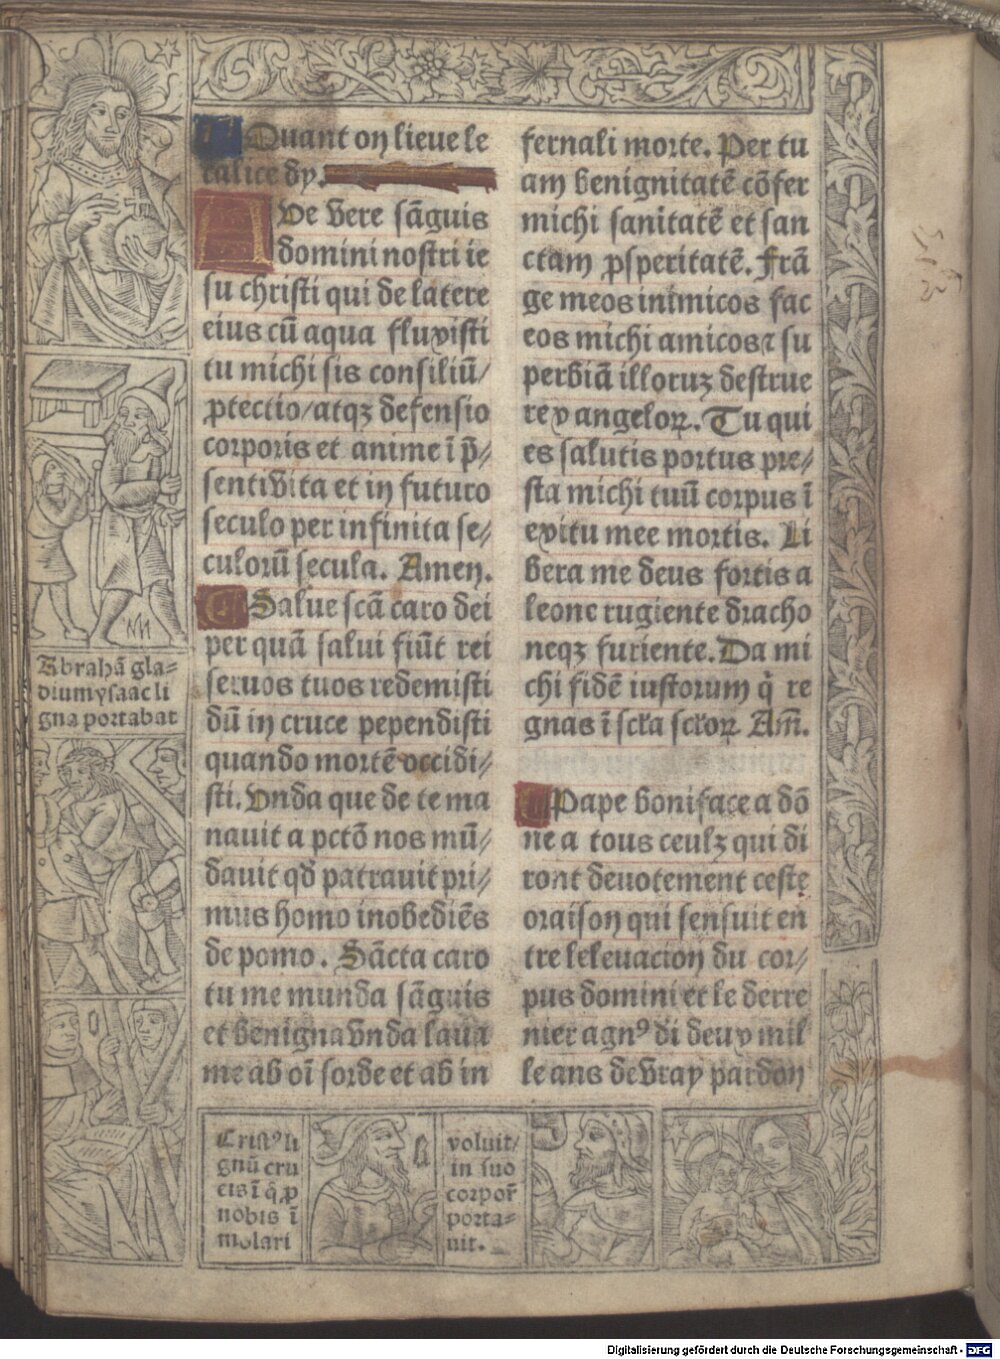 Quant on lieue le
calice dy.
AVe vere sāguis
domini nostri ie
su christi qui de latere
eius cū aqua fluxisti
tu michi sis consiliū/
ꝓtectio/atqꝫ defensio
corporis et anime ī p̄/
senti vita et in futuro
seculo per infinita se/
culorū secula. Amen.
Salue scā caro dei
per quā salui fiūt rei
seruos tuos redemisti
dū in cruce pependisti
quando mortē occidi/
sti. Vnda que de te ma
nauit a pctō nos mū/
dauit qđ patrauit pri/
mus homo inobediēs
de pomo. Sācta caro
tu me munda sāguis
et benigna vnda laua
me ab oī sorde et ab in
fernali morte. Per tu
am benignitatē cōfer
michi sanitatē et san
ctam ꝓsperitatē. Frā
ge meos inimicos fac
eos michi amicos ⁊ su
perbiā illoruꝫ destrue
rex angeloꝝ. Tu qui
es salutis portus pre/
sta michi tuū corpus ī
exitu mee mortis. Li
bera me deus fortis a
leone rugiente dracho
neqꝫ furiente. Da mi
chi fidē iustorum q̇ re
gnas ī scła scłoꝝ Am̄.
Pape boniface a dō
ne a tous ceulꝫ qui di
ront deuotement ceste
oraison qui sensuit en
tre leleuacion du cor/
pus domini et le derre
nier agnꝰ di deux mil
le ans de vray pardon
Abrahā gla=
dium ysaac li
gna portabat
Cristꝰ li
gnū cru
cis ī q̇ ꝓ
nobis ī
molari
voluit/
in suo
corpor̄
porta=
uit.
Digitalisierung gefördert durch die Deutsche Forschungsgemeinschaft - DFG